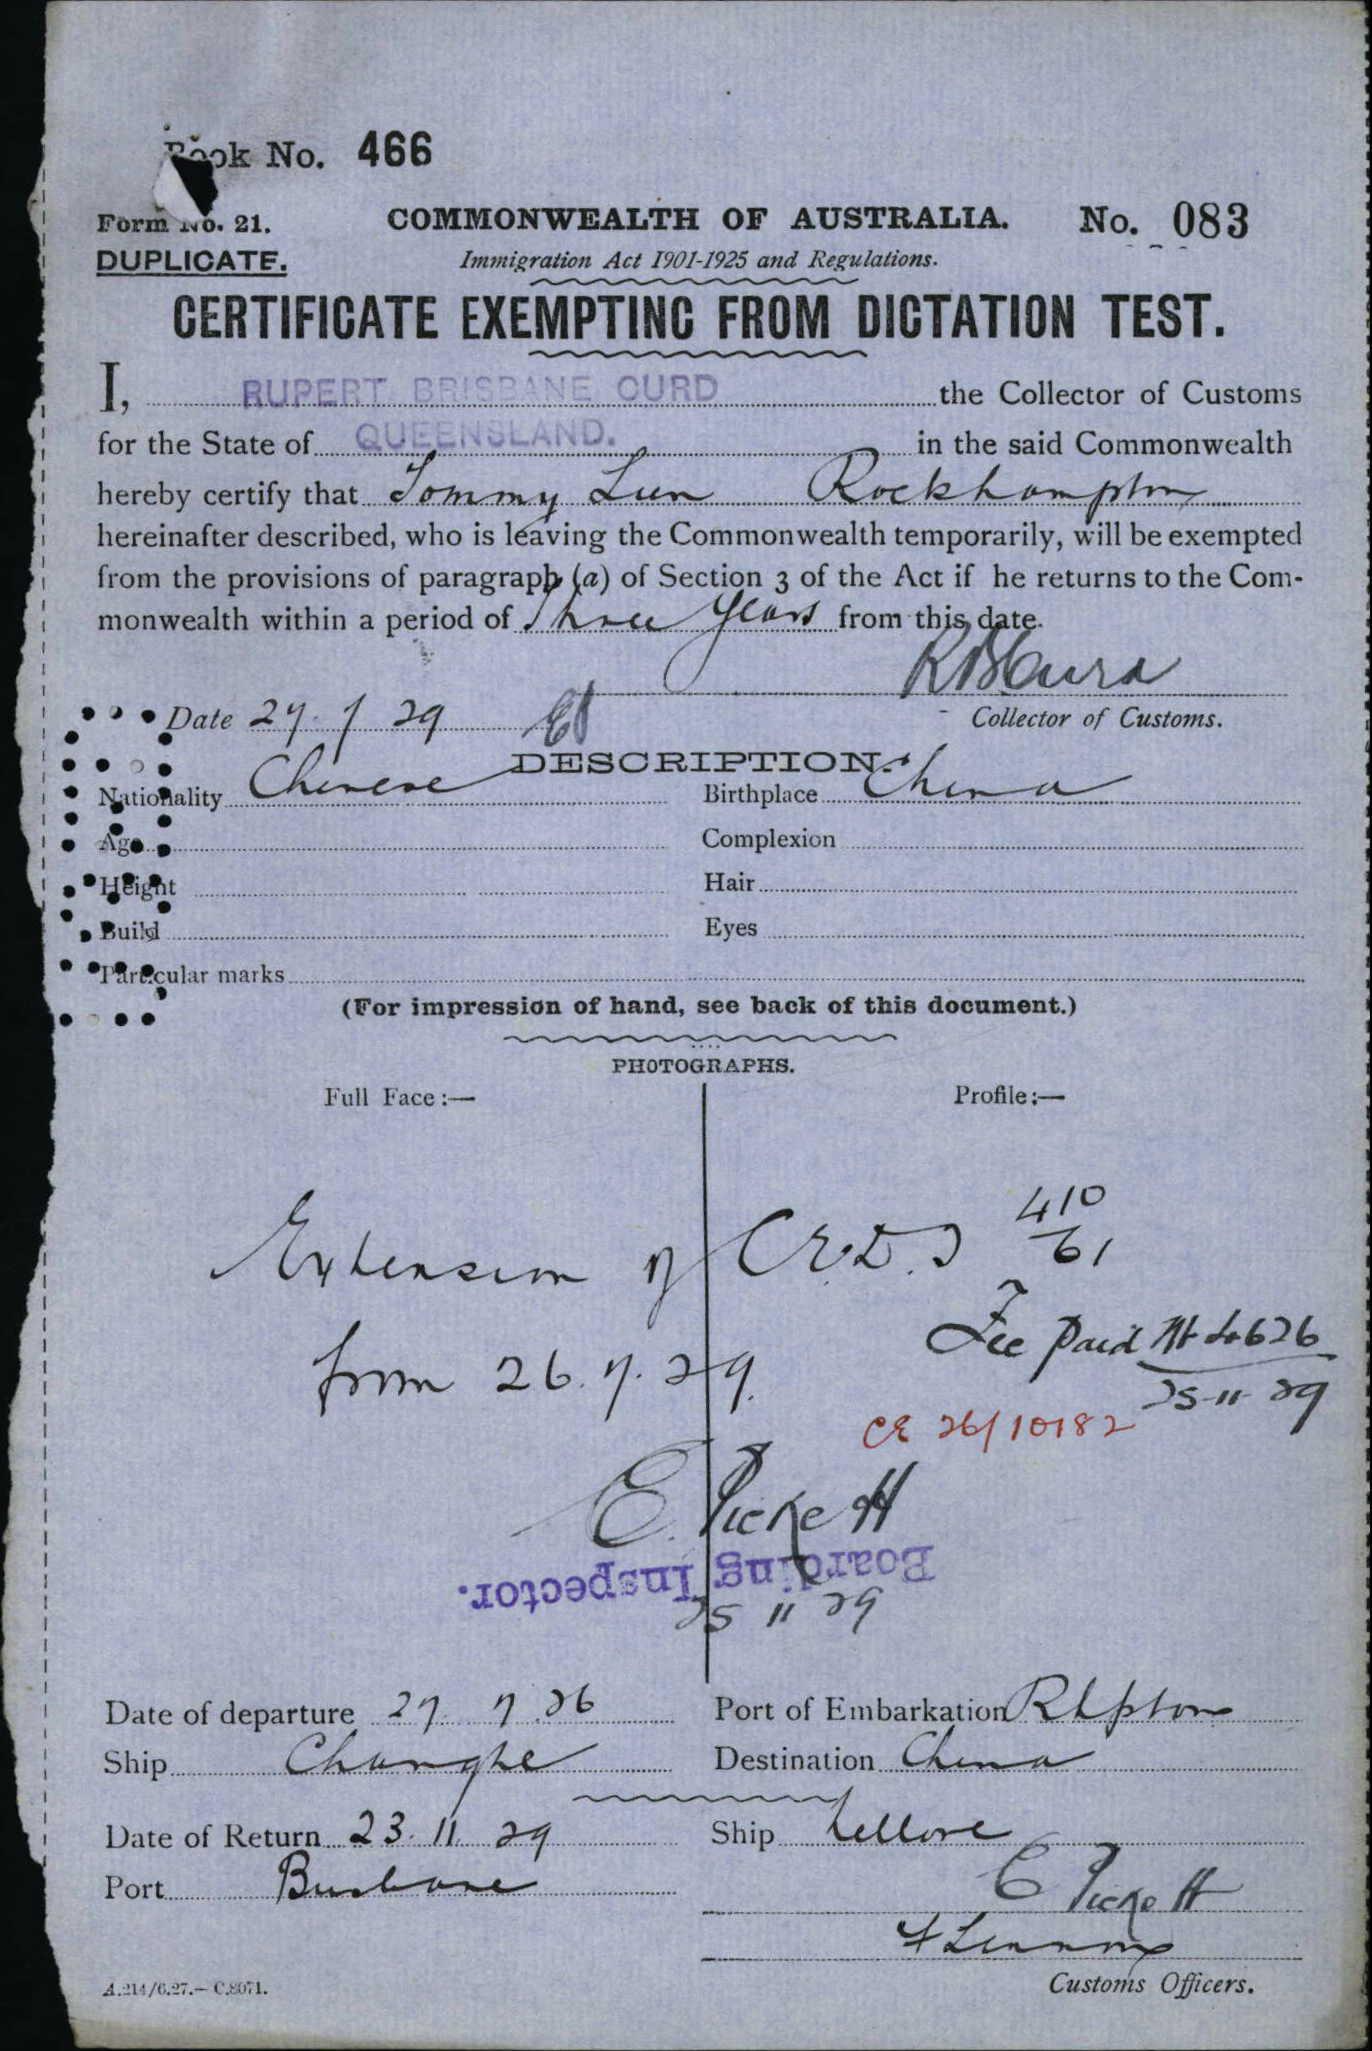 Book No. 466
Form No. 21. COMMONWEALTH OF AUSTRALIA. No. 083
DUPLICATE. Immigration Act 1901-1925 and Regulations.
CERTIFICATE EXEMPTING FROM DICTATION TEST.
I, RUPERT BRISBANE CURD the Collector of Customs
for the State of QUEENSLAND. in the said Commonwealth
hereby certify that Tommy Lun Rockhampton
hereinafter described, who is leaving the Commonwealth temporarily, will be exempted
from the provisions of paragraph (a) of Section 3 of the Act if he returns to the Com-
monwealth within a period of Three Years from this date.
R B Curd
Date 27. 7 29 Collector of Customs.
DESCRIPTION.
Nationality Chinese Birthplace China
Age Complexion
Height Hair
Build Eyes
Particular marks
(For impression of hand, see back of this document.)
PHOTOGRAPHS.
Full Face:— Profile:—
Extension of C.E.D.T 410/61
Fee paid 4626
from 26. 7. 29.
25-11-29
CE 26/10182
E. Pickett
Boarding Inspector.
25 11 29
Date of departure 27. 7. 26 Port of Embarkation Rkpton
Ship Changte Destination China
Date of Return 23. 11. 29 Ship Nellore
Port Brisbane E Pickett
F Lennon
Customs Officers.
A.214/6.27.—C.8071.